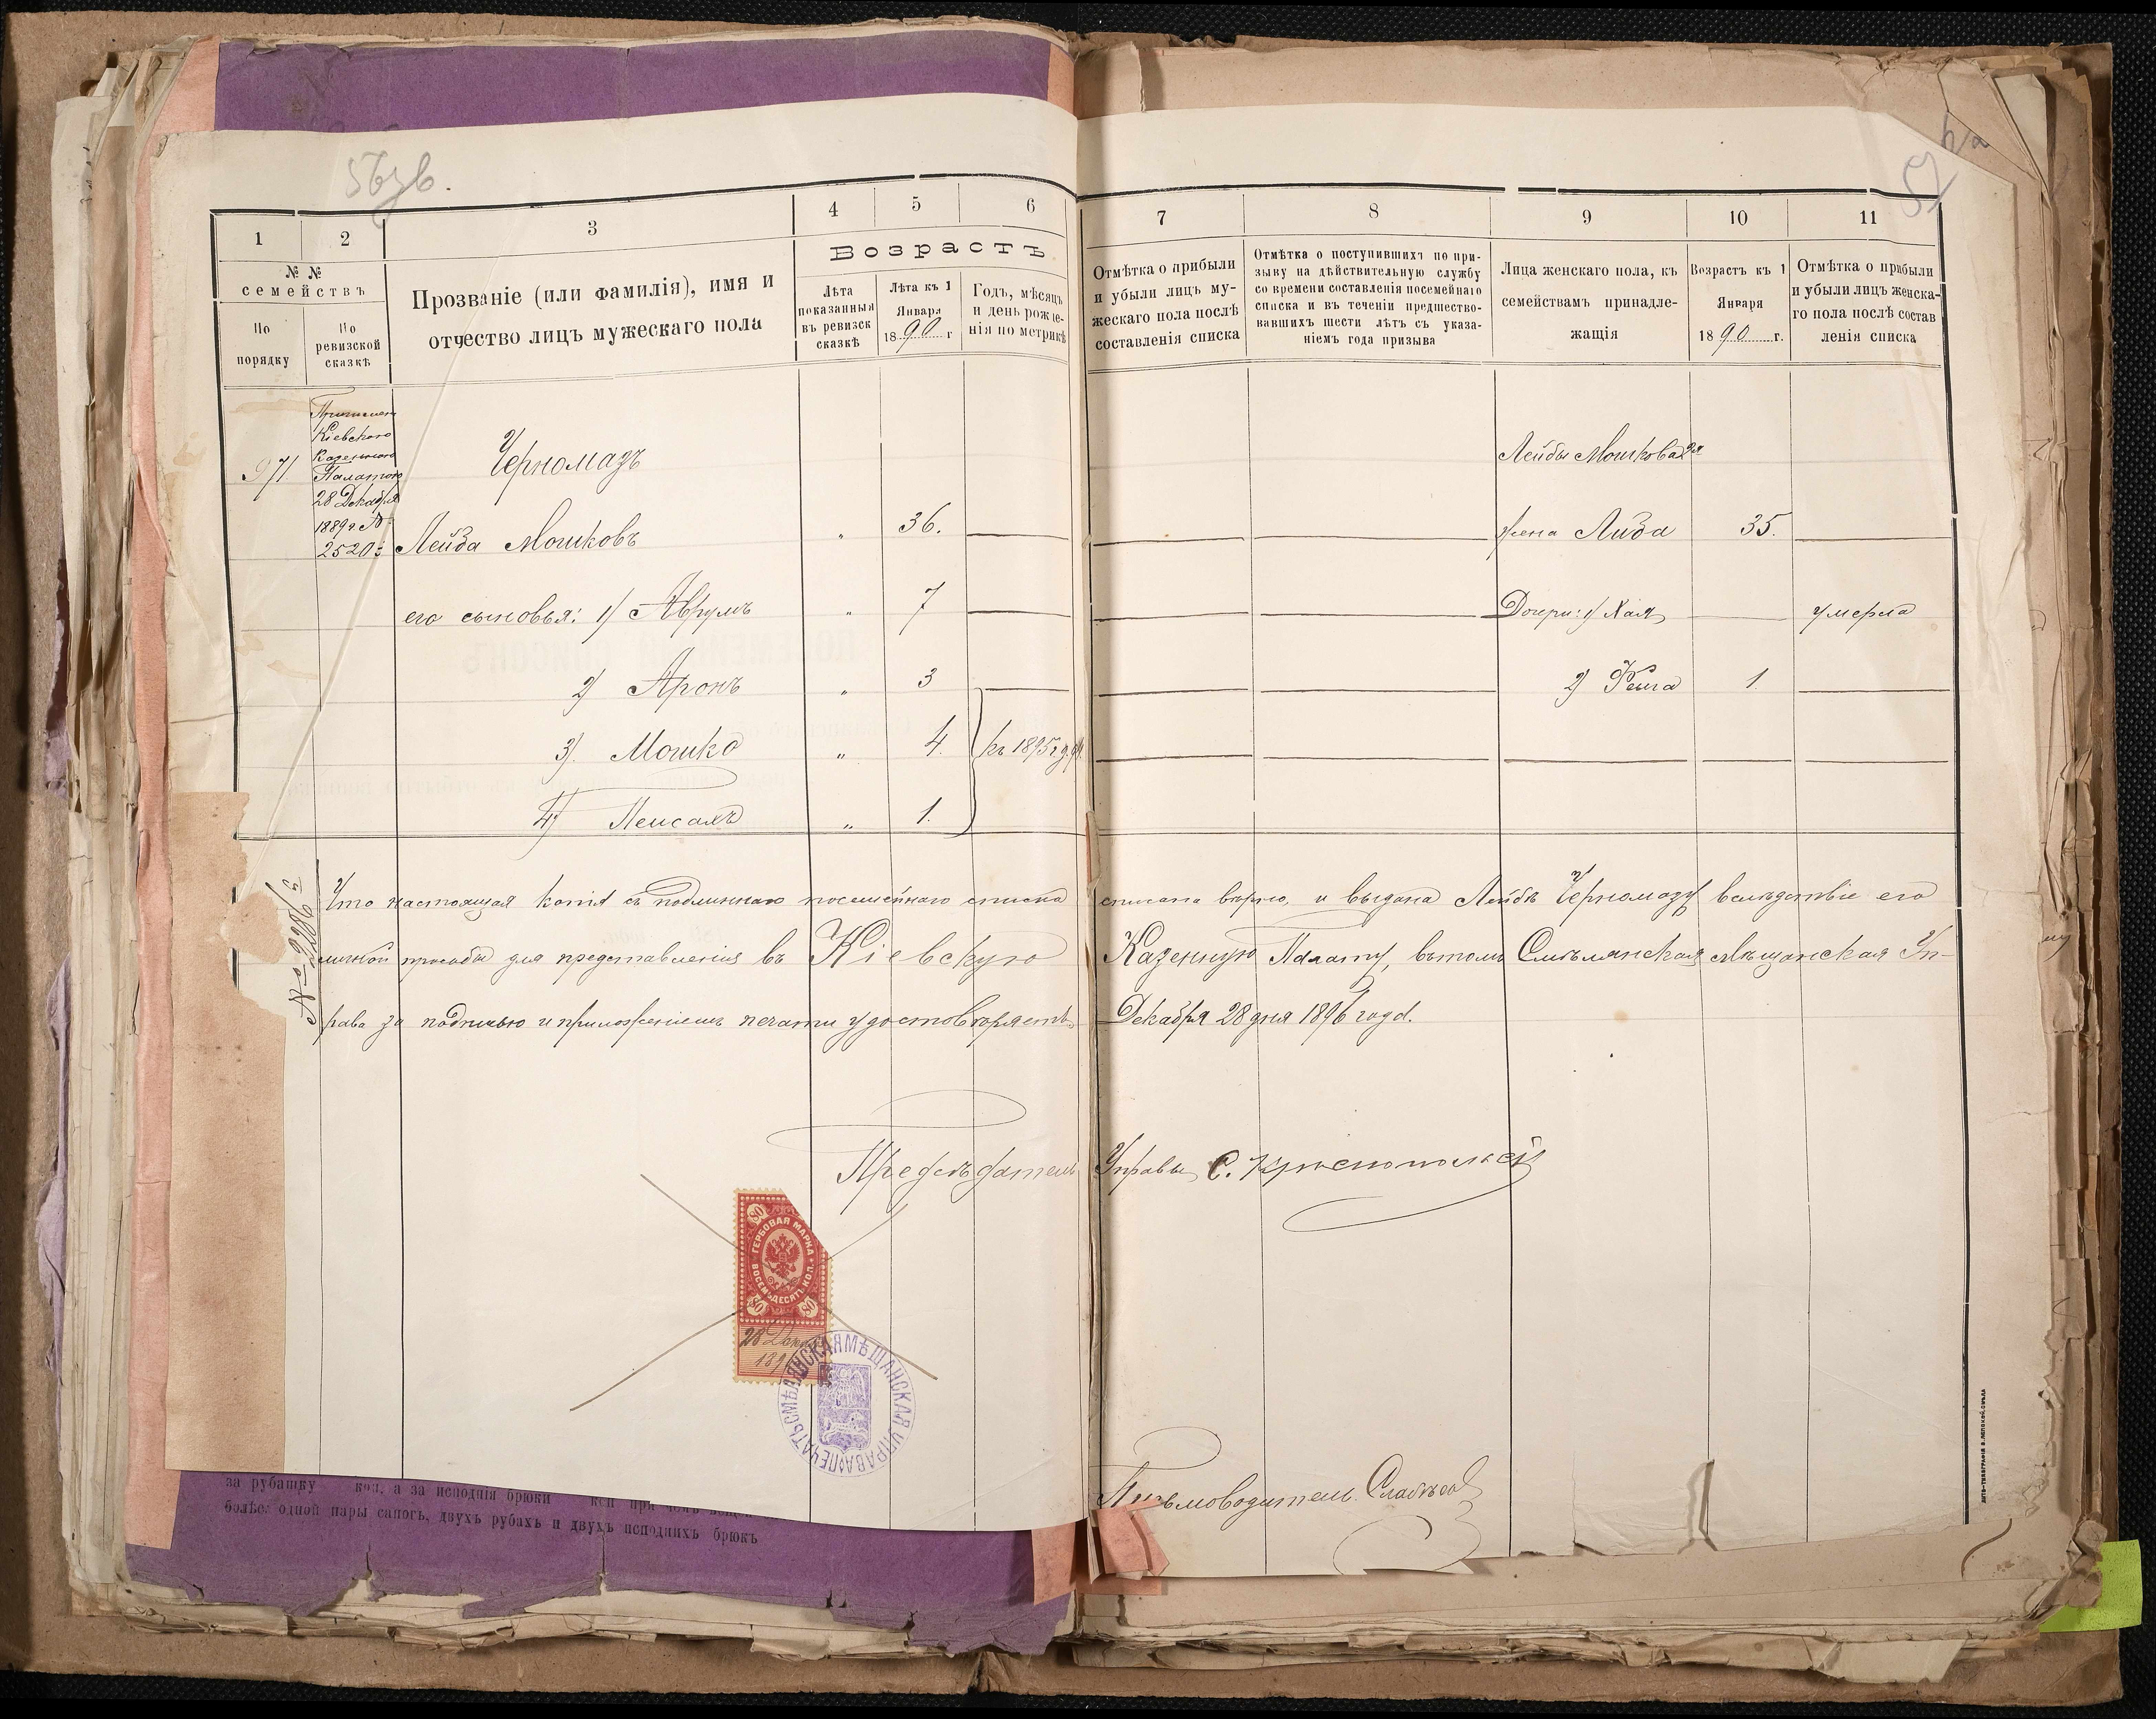 56зв.
57
1
2
3
4
5
6
7
8
9
10
11
№ №
семействъ
По порядку
По ревизской сказкѣ
Прозваніе (или фамилія), имя и
отчество лицъ мужескаго пола
Возрастъ
Лѣта
показанныя
въ ревизск
сказкѣ
Лѣта къ 1
Января
1890 г
Годъ, мѣсяцъ
и день рожде-
нія по метрикѣ
Отмѣтка о прибыли
и убыли лицъ му-
жескаго пола послѣ
составленія списка
Отмѣтка о поступившихъ по при-
зыву на дѣйствительную службу
со времени составленія посемейнаго
списка и въ теченіи предшество-
вавшихъ шести лѣтъ съ указа-
ніемъ года призыва
Лица женскаго пола, къ
семействамъ принадле-
жащія
Возрастъ къ 1
Января
1890 г.
Отмѣтка о прибыли
и убыли лицъ женска-
го пола послѣ состав
ленія списка
971
Причислен
Кіевскою
Казенною
Палатою
28 Декабря
1889 г. №
2520
Черномазъ
Лейбы Мошкова 2я
Лейба Мошковъ „ 36.
жена Либа 35.
его сыновья: 1) Аврумъ „ 7
Дочери: 1) Хая умерла
2) Аронъ „ 3
2) Фейга 1.
3) Мошко „ 4. къ 1895 г.
4) Пейсахъ „ 1.
№ 2286
Что настоящая копія съ подлиннаго посемейнаго списка списана вѣрно, и выдана Лейбѣ Черномазу вслѣдствіе его
личной просьбы для представленія въ Кіевскую Казенную Палату, въ томъ Смѣлянская Мѣщанская Уп-
рава за подписью и приложеніемъ печати удостовѣряетъ Декабря 28 дня 1896 года.
Предсѣдатель Управы С. Краснопольскій
80
ГЕРБОВАЯ МАРКА
ВОСЕМЬДЕСЯТЬ КОП.
80 80
28 Декаб
189
ПЕЧАТЬ СМѢЛЯНСКАЯ МѢЩАНСКАЯ УПРАВА
Письмоводитель
за рубашку коп, а за исподнія брюки коп при чемъ вещей
болѣе одной пары сапогъ, двухъ рубахъ и двухъ исподнихъ брюкъ